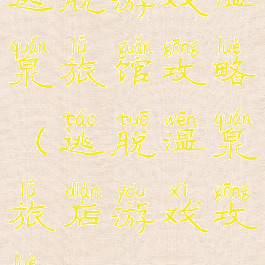 逃脱游戏温
quán lǚ guǎn gōng lüè
泉旅馆攻略
táo tuō wēn quán
（逃脱温泉
lǚ diàn yóu xì gōng
旅店游戏攻
lüè